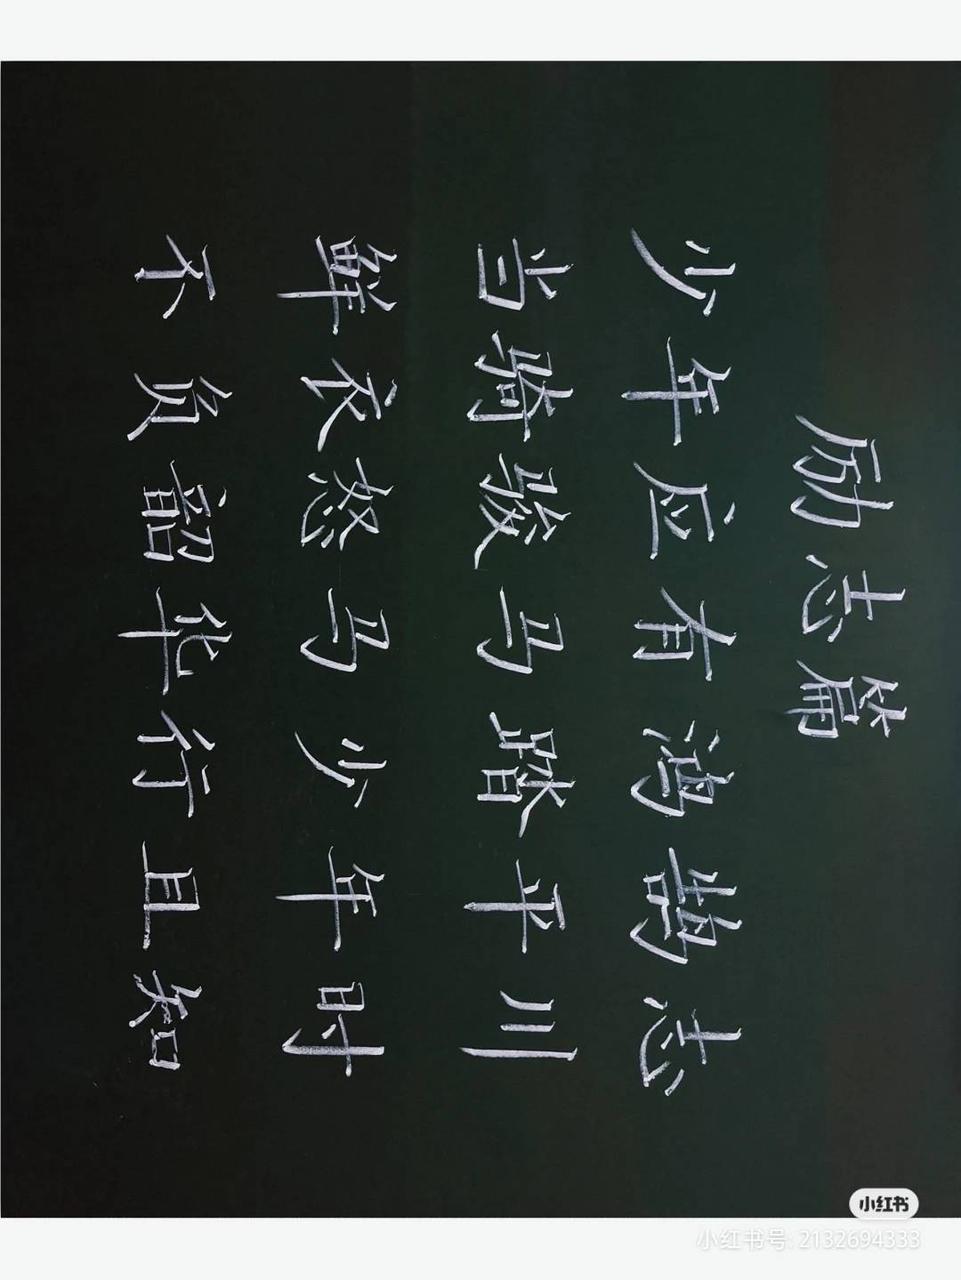 励志篇
少年应有鸿鹄志
当骑骏马踏平川
鲜衣怒马少年时
不负韶华行且知
小红书
小红书号: 2132694333